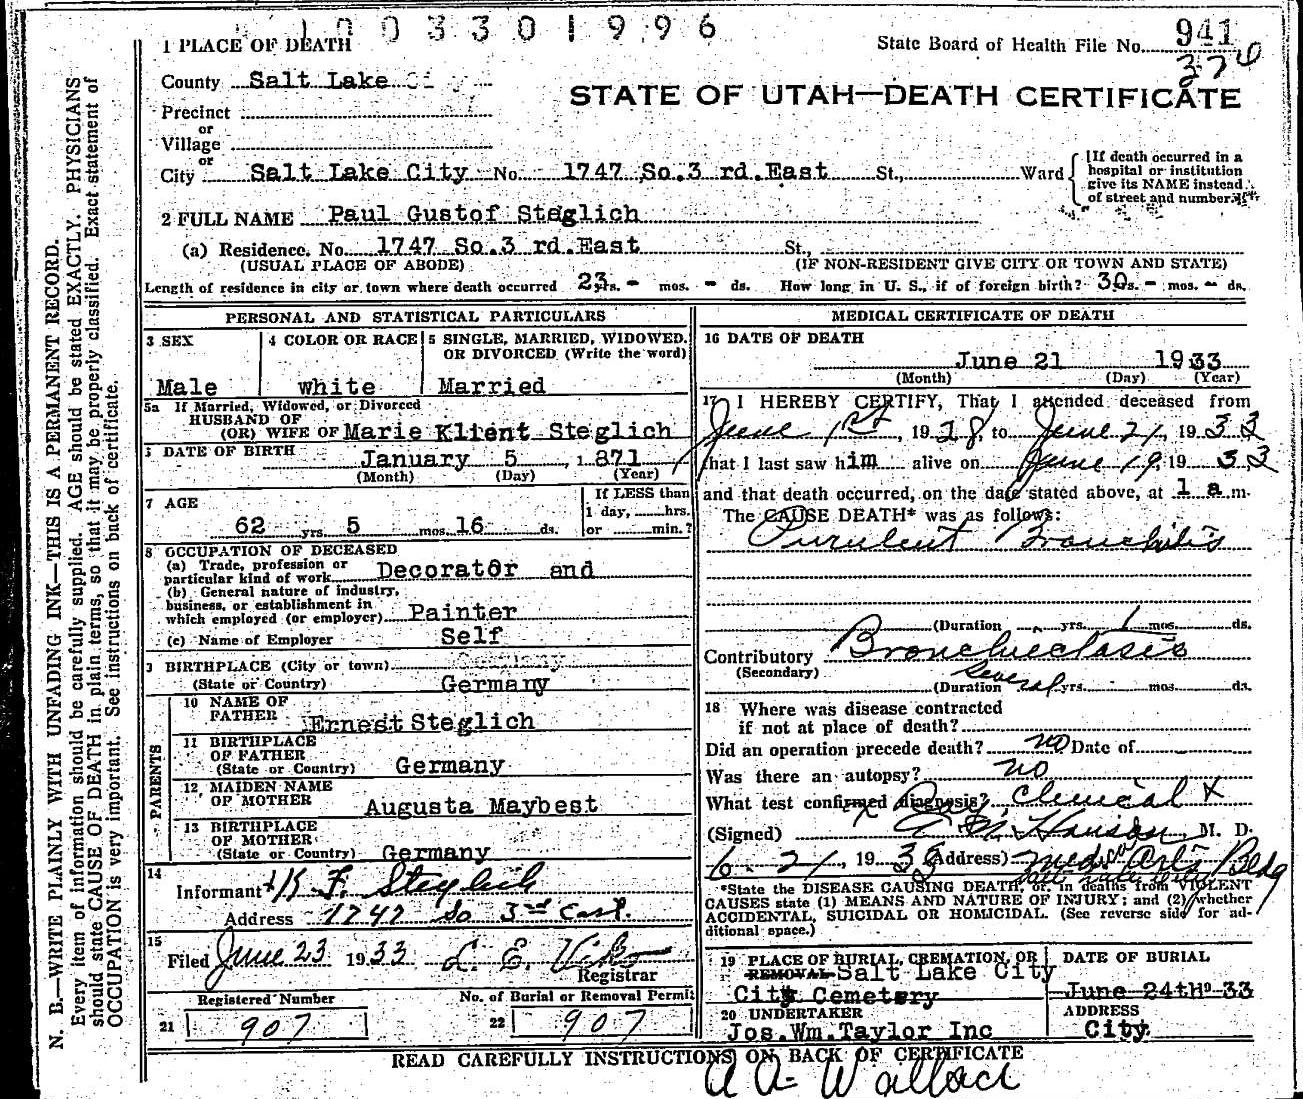 1003301996
1 PLACE OF DEATH
State Board of Health File No. 941
374
County Salt Lake
STATE OF UTAH—DEATH CERTIFICATE
Precinct
or
Village
or
City Salt Lake City No. 1747 So.3 rd.East St., Ward
[If death occurred in a
hospital or institution
give its NAME instead
of street and number.
2 FULL NAME Paul Gustof Steglich
(a) Residence. No. 1747 So.3 rd.East St.,
(USUAL PLACE OF ABODE) (IF NON-RESIDENT GIVE CITY OR TOWN AND STATE)
Length of residence in city or town where death occurred 23 yrs. - mos. - ds. How long in U. S., if of foreign birth? 30 yrs. - mos. - ds.
PERSONAL AND STATISTICAL PARTICULARS
3 SEX
Male
4 COLOR OR RACE
white
5 SINGLE, MARRIED, WIDOWED,
OR DIVORCED (Write the word)
Married
5a If Married, Widowed, or Divorced
HUSBAND OF
(OR) WIFE OF Marie Klient Steglich
DATE OF BIRTH
January 5, 1871
(Month) (Day) (Year)
7 AGE
62 yrs. 5 mos. 16 ds.
If LESS than
1 day, hrs.
or min.?
8 OCCUPATION OF DECEASED
(a) Trade, profession or
particular kind of work Decorator and
(b) General nature of industry,
business, or establishment in
which employed (or employer) Painter
(c) Name of Employer Self
BIRTHPLACE (City or town)
(State or Country) Germany
PARENTS
10 NAME OF
FATHER Ernest Steglich
11 BIRTHPLACE
OF FATHER
(State or Country) Germany
12 MAIDEN NAME
OF MOTHER Augusta Maybest
13 BIRTHPLACE
OF MOTHER
(State or Country) Germany
14
Informant F. Steglich
Address 1747 So 3rd East.
15
Filed June 23 1933 L. E.
Registrar
Registered Number
21 907
No. of Burial or Removal Permit
22 907
MEDICAL CERTIFICATE OF DEATH
16 DATE OF DEATH
June 21 1933
(Month) (Day) (Year)
17 I HEREBY CERTIFY, That I attended deceased from
June 1st, 1928, to June 21, 1933
that I last saw him alive on June 19, 1933
and that death occurred, on the date stated above, at 1 a.m.
The CAUSE DEATH* was as follows:
Purulent Bronchitis
(Duration yrs. 1 mos. ds.
Contributory Bronchiectasis
(Secondary)
(Duration Several yrs. mos. ds.
18 Where was disease contracted
if not at place of death?
Did an operation precede death? no Date of
Was there an autopsy? no
What test confirmed diagnosis? Clinical X
x Ray
(Signed) Hanson, M. D.
6-21, 1933 (Address) Medical Arts Bldg
Salt Lake City
*State the DISEASE CAUSING DEATH, or, in deaths from VIOLENT
CAUSES state (1) MEANS AND NATURE OF INJURY; and (2) whether
ACCIDENTAL, SUICIDAL OR HOMICIDAL. (See reverse side for ad-
ditional space.)
19 PLACE OF BURIAL, CREMATION, OR
REMOVAL Salt Lake City
City Cemetery
DATE OF BURIAL
June 24th 19 33
20 UNDERTAKER
Jos.Wm.Taylor Inc
ADDRESS
City
READ CAREFULLY INSTRUCTIONS ON BACK OF CERTIFICATE
A A Wallace
N. B.—WRITE PLAINLY WITH UNFADING INK—THIS IS A PERMANENT RECORD.
Every item of information should be carefully supplied. AGE should be stated EXACTLY. PHYSICIANS
should state CAUSE OF DEATH in plain terms, so that it may be properly classified. Exact statement of
OCCUPATION is very important. See instructions on back of certificate.